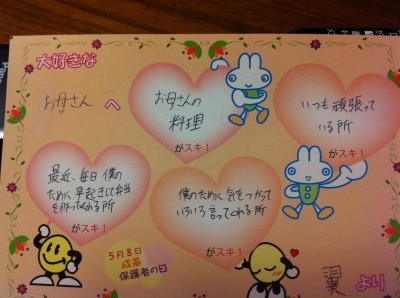 大好きな
お母さん へ
お母さんの
料理
がスキ!
いつも頑張って
いる所
がスキ!
最近、毎日僕の
ために早起きして弁当
を作ってくれる所
がスキ!
僕のために気をつかって
いろいろ言ってくれる所
がスキ!
5月8日
成基
保護者の日
翼 より